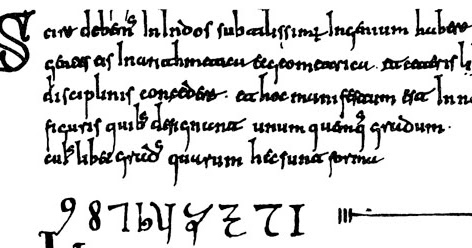 Scire debem' In Indos subtilissimum Ingenium habere
gentes eis In arithmetica et geometrica. et ceteris li
disciplinis concedere. et hoc manifestum est In
figuris quib' designant unum quemq' gradum.
cui'libet grad' quarum hec sunt forma
9 8 7 6 5 4 3 2 1